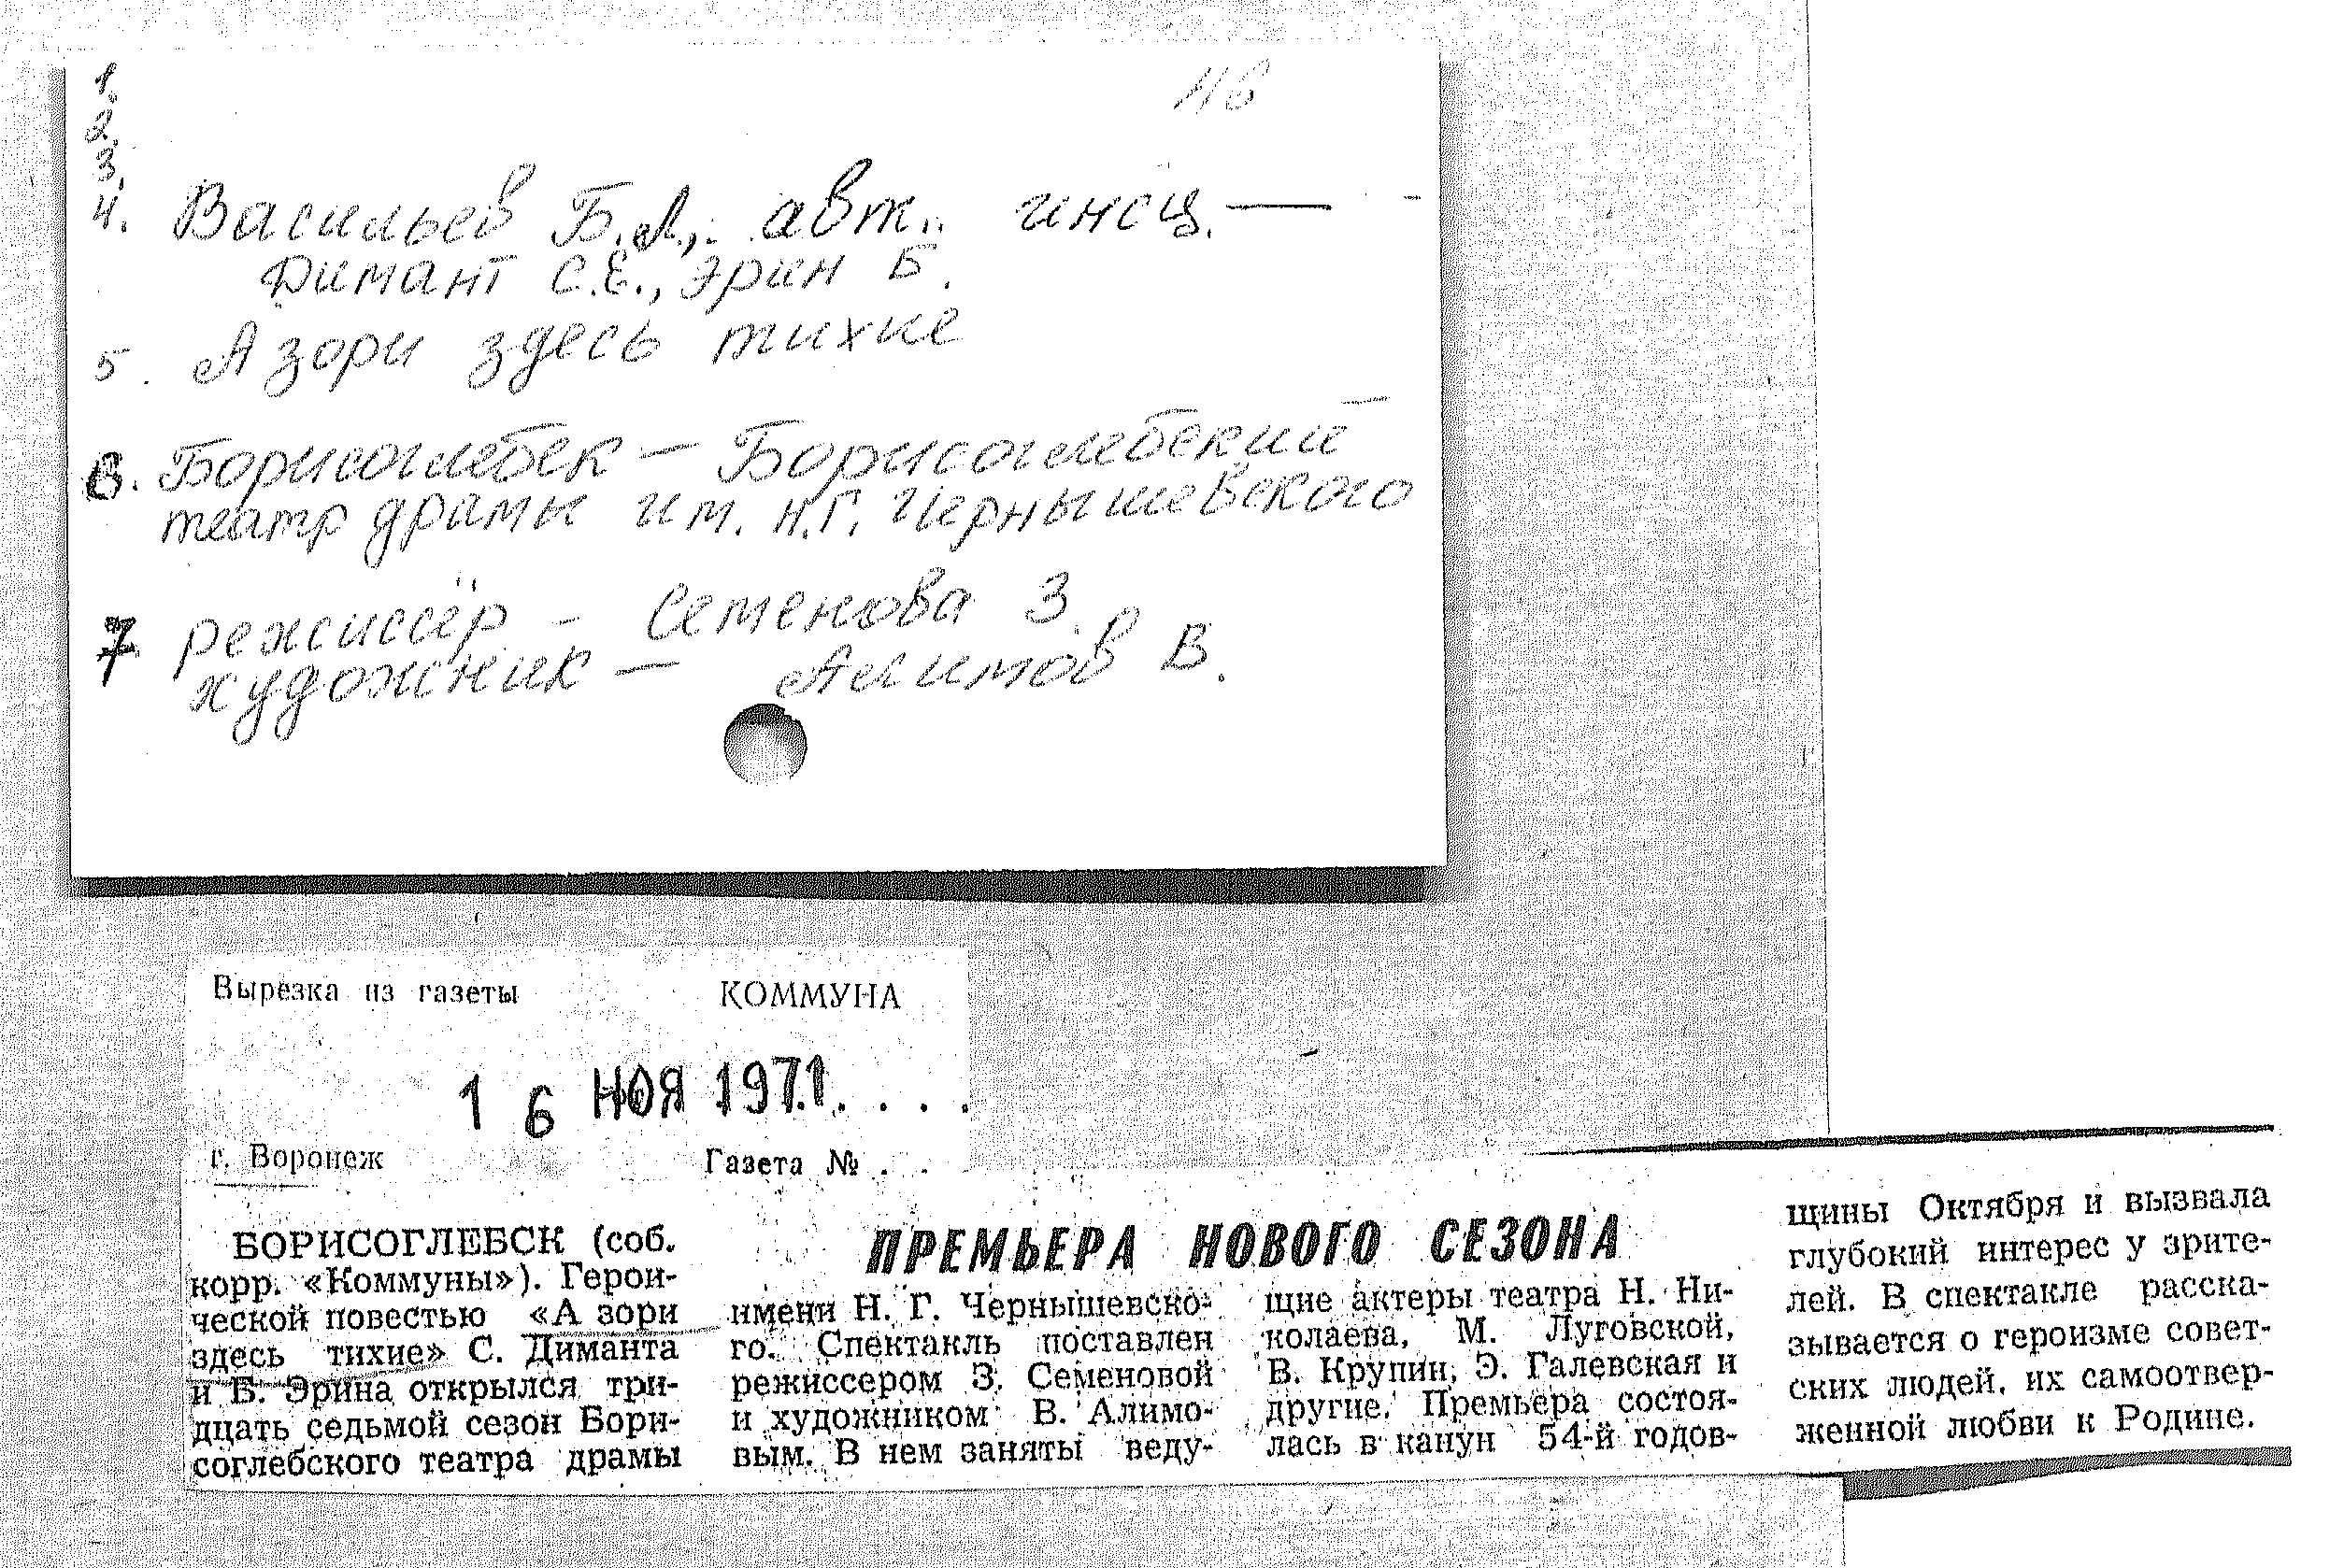 116
1.
2.
3.
4. Васильев Б.Л., авт. инсц. —
Димант С.Е., Эрин Б.
5. А зори здесь тихие
6. Борисоглебск — Борисоглебский
театр драмы им. Н.Г. Чернышевского
7. режиссёр – Семенова З.
художник — Алимов В.
Вырезка из газеты КОММУНА
16 НОЯ 1971 . . . .
г. Воронеж Газета № . .
ПРЕМЬЕРА НОВОГО СЕЗОНА
БОРИСОГЛЕБСК (соб.
корр. «Коммуны»). Герои-
ческой повестью «А зори
здесь тихие» С. Диманта
и Б. Эрина открылся три-
дцать седьмой сезон Бори-
соглебского театра драмы
имени Н. Г. Чернышевско-
го. Спектакль поставлен
режиссером З. Семеновой
и художником В. Алимо-
вым. В нем заняты веду-
щие актеры театра Н. Ни-
колаева, М. Луговской,
В. Крупин, Э. Галевская и
другие. Премьера состоя-
лась в канун 54-й годов-
щины Октября и вызвала
глубокий интерес у зрите-
лей. В спектакле расска-
зывается о героизме совет-
ских людей, их самоотвер-
женной любви к Родине.